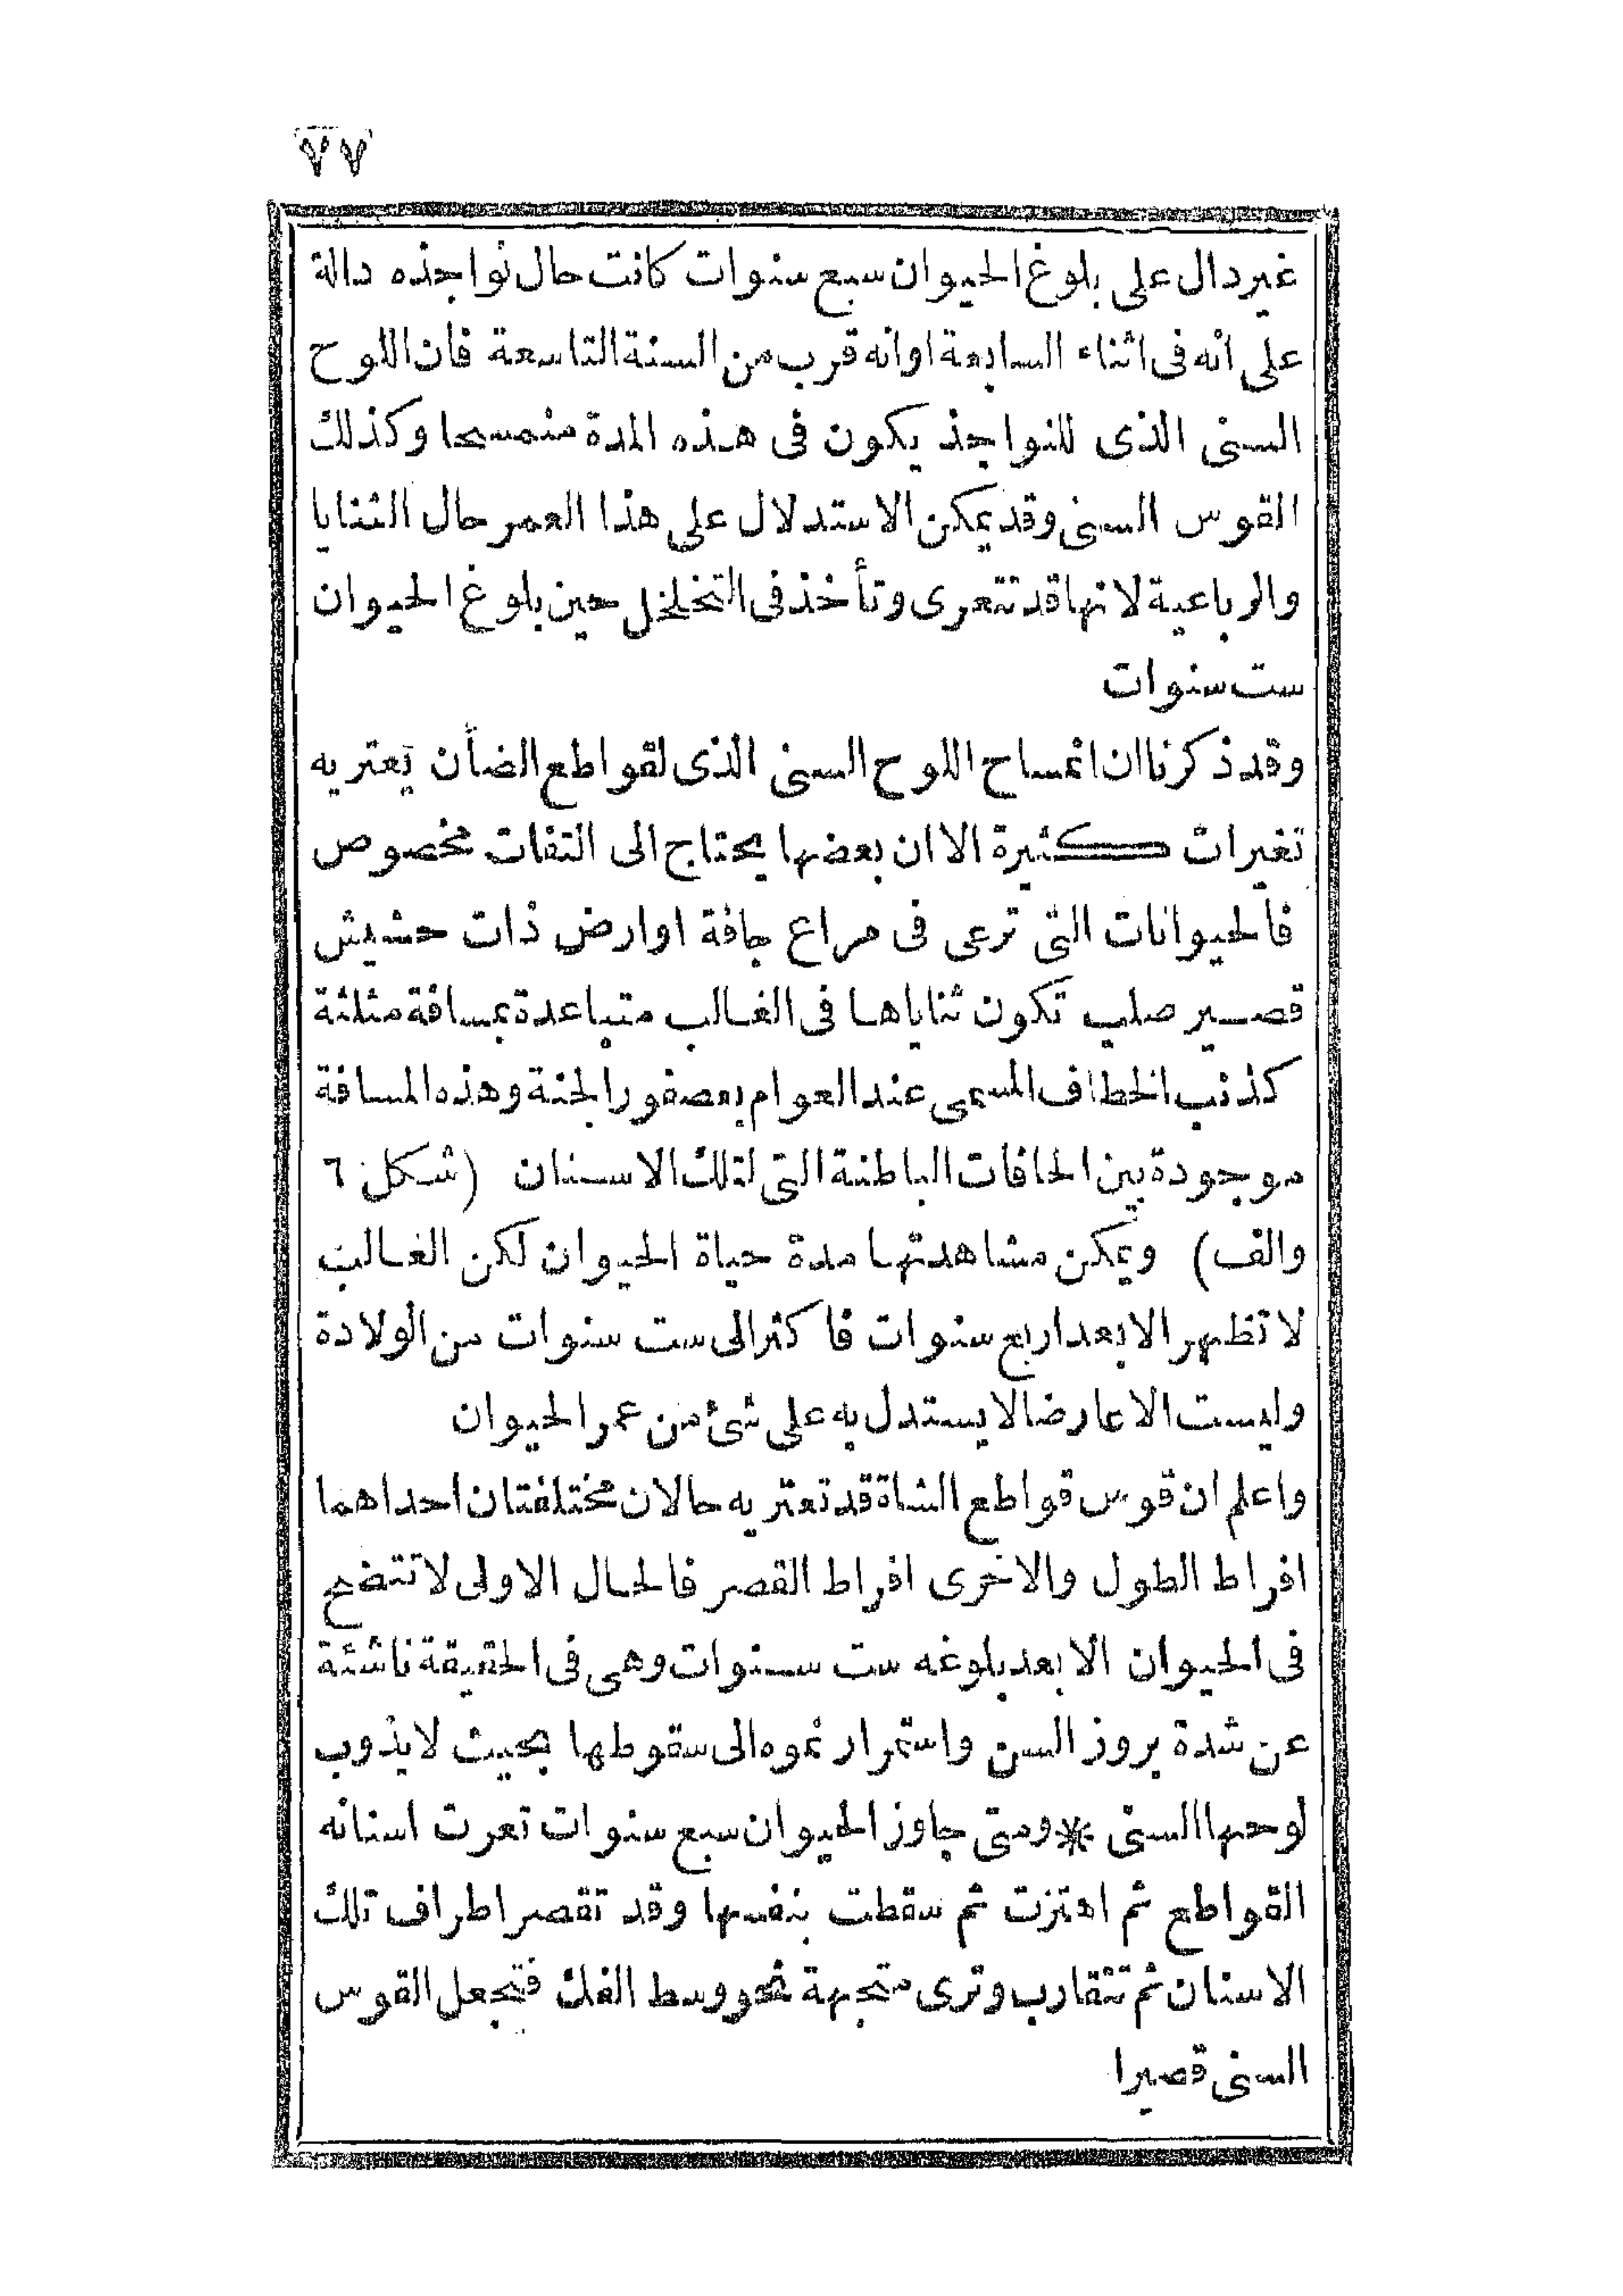 ٧٧
غير دال على بلوغ الحيوان سبع سنوات كانت حال نواجذه دالة
على انه فى اثناء السابعة او انه قرب من السنة التاسعة فان اللوح
السنى الذى للنواجذ يكون فى هذه المدة منمسحا وكذلك
القوس السنى وقد يمكن الاستدلال على هذا العمر حال الثنايا
والرباعية لانها قد تتعرى وتأخذ فى التخلخل حين بلوغ الحيوان
ست سنوات
وقد ذكرنا ان انمساح اللوح السنى الذى لقواطع الضأن يعتريه
تغيرات كثيرة الا ان بعضها يحتاج الى التفات مخصوص
فالحيوانات التى ترعى فى مراع جافة او ارض ذات حشيش
قصير صلب تكون ثناياها فى الغالب متباعدة بمسافة مثلثة
كذنب الخطاف المسمى عند العوام بعصفور الجنة وهذه المسافة
موجودة بين الحافات الباطنة التى لتلك الاسنان (شكل ٦
والف) ويمكن مشاهدتها مدة حياة الحيوان لكن الغالب
لا تظهر الا بعد اربع سنوات فاكثر الى ست سنوات من الولادة
وليست الا عارضا لا يستدل به على شئ من عمر الحيوان
واعلم ان قوس قواطع الشاة قد تعتريه حالان مختلفتان احداهما
افراط الطول والاخرى افراط القصر فالحال الاولى لا تتضح
فى الحيوان الا بعد بلوغه ست سنوات وهى فى الحقيقة ناشئة
عن شدة بروز السن واستمرار نموه الى سقوطها بحيث لا يذوب
لوحها السنى * ومتى جاوز الحيوان سبع سنوات تعرت اسنانه
القواطع ثم اهتزت ثم سقطت بنفسها وقد تقصر اطراف تلك
الاسنان ثم تتقارب وترى متجهة نحو وسط الفك فتجعل القوس
السنى قصيرا